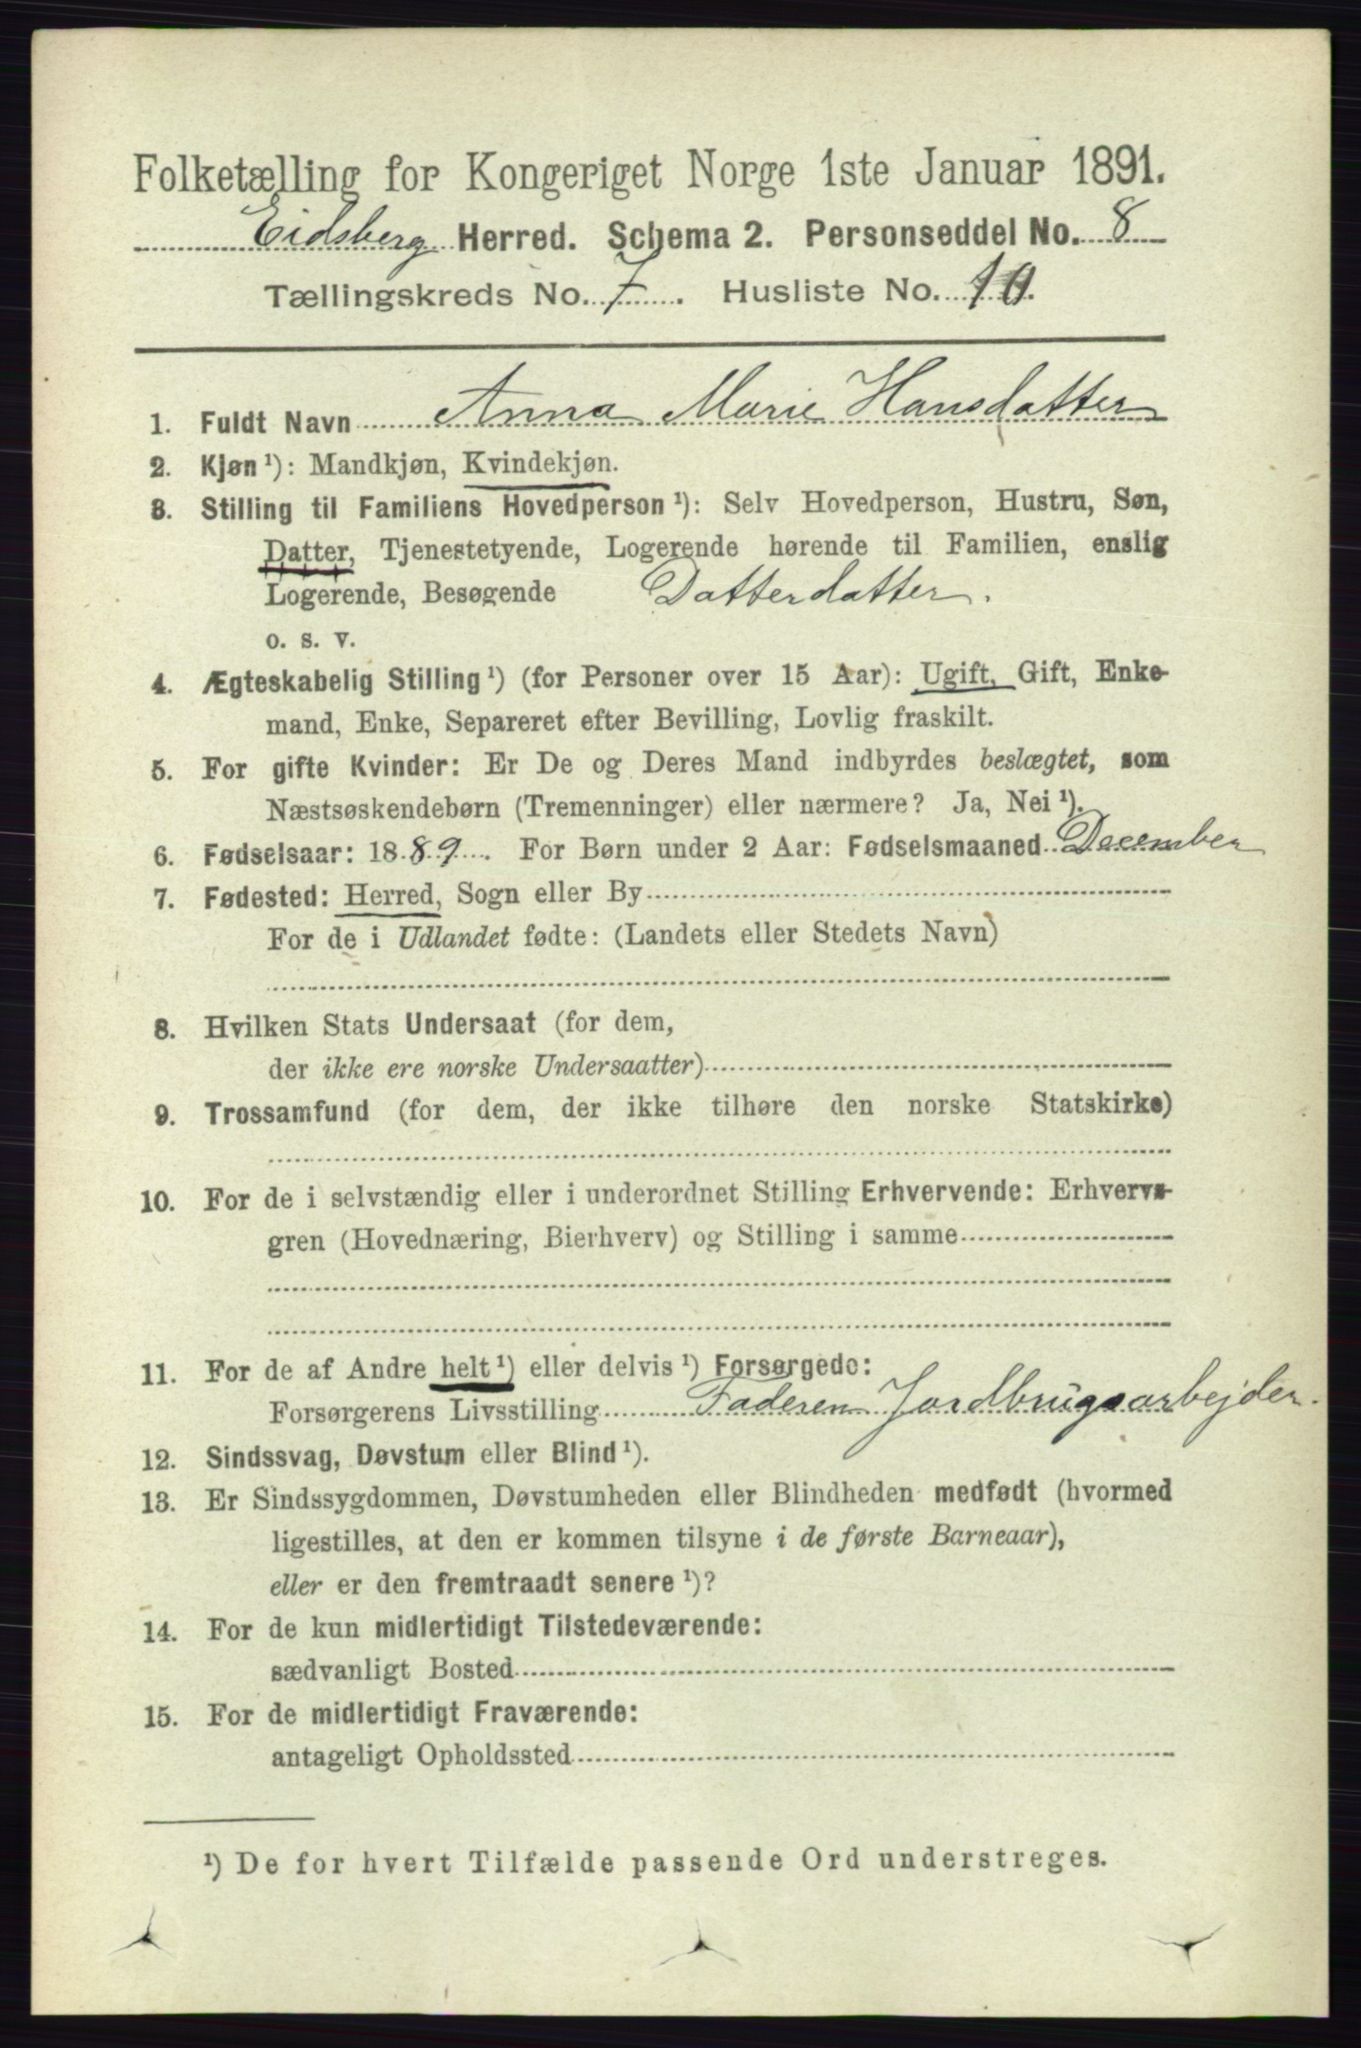 Folketælling for Kongeriget Norge 1ste Januar 1891.
Eidsberg Herred. Schema 2. Personseddel No. 8
Tællingskreds No. 7. Husliste No. 10.
1. Fuldt Navn Anna Marie Hansdatter
2. Kjøn ¹): Mandkjøn, Kvindekjøn.
3. Stilling til Familiens Hovedperson ¹): Selv Hovedperson, Hustru, Søn,
Datter, Tjenestetyende, Logerende hørende til Familien, enslig
Logerende, Besøgende Datterdatter.
o. s. v.
4. Ægteskabelig Stilling ¹) (for Personer over 15 Aar): Ugift, Gift, Enke-
mand, Enke, Separeret efter Bevilling, Lovlig fraskilt.
5. For gifte Kvinder: Er De og Deres Mand indbyrdes beslægtet, som
Næstsøskendebørn (Tremenninger) eller nærmere? Ja, Nei ¹).
6. Fødselsaar: 1889. For Børn under 2 Aar: Fødselsmaaned December
7. Fødested: Herred, Sogn eller By
For de i Udlandet fødte: (Landets eller Stedets Navn)
8. Hvilken Stats Undersaat (for dem,
der ikke ere norske Undersaatter)
9. Trossamfund (for dem, der ikke tilhøre den norske Statskirke)
10. For de i selvstændig eller i underordnet Stilling Erhvervende: Erhvervs-
gren (Hovednæring, Bierhverv) og Stilling i samme
11. For de af Andre helt ¹) eller delvis ¹) Forsørgede:
Forsørgerens Livsstilling Faderen Jordbrugsarbejder.
12. Sindssvag, Døvstum eller Blind ¹).
13. Er Sindssygdommen, Døvstumheden eller Blindheden medfødt (hvormed
ligestilles, at den er kommen tilsyne i de første Barneaar),
eller er den fremtraadt senere ¹)?
14. For de kun midlertidigt Tilstedeværende:
sædvanligt Bosted
15. For de midlertidigt Fraværende:
antageligt Opholdssted
¹) De for hvert Tilfælde passende Ord understreges.